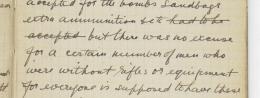 accepted for the bombs Sandbags
extra ammunition etc had to be
accepted but there was no excuse
for a certain number of men who
were without rifles or equipment
for everyone is supposed to have these